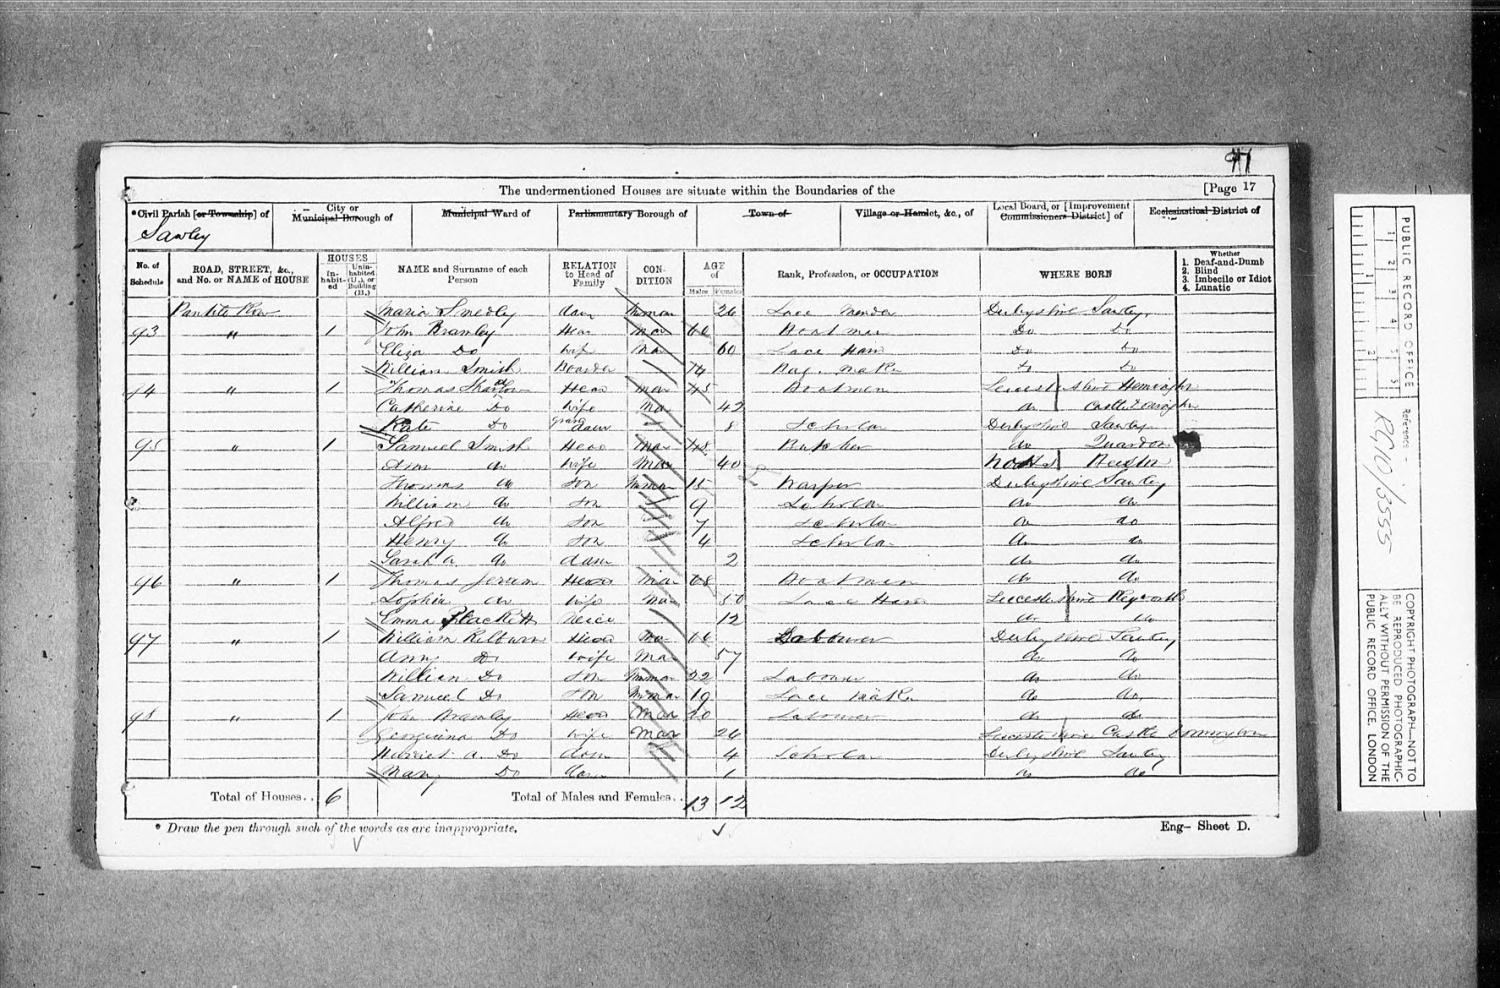 71
The undermentioned Houses are situate within the Boundaries of the [Page 17
*Civil Parish [or Township] of
City or Municipal Borough of
Municipal Ward of
Parliamentary Borough of
Town of
Village or Hamlet, &c., of
Local Board, or [Improvement Commissioners District] of
Ecclesiastical District of
Sawley
No. of Schedule
ROAD, STREET, &c., and No. or NAME of HOUSE
HOUSES
Inhabited
Uninhabited (U.), or Building (B.)
NAME and Surname of each Person
RELATION to Head of Family
CONDITION
AGE of
Males
Females
Rank, Profession, or OCCUPATION
WHERE BORN
Whether
1. Deaf-and-Dumb
2. Blind
3. Imbecile or Idiot
4. Lunatic
Row Maria Smedley daur Unmar 26 Lace Mender Derbyshire Sawley
93 " 1 John Bramley Head Mar 60 Boatman Do Do
Eliza Do Wife Mar 60 Lace Do Do
William Smith Boarder 74 Maker Do Do
94 " 1 Thomas Head mar 45 Boatman Leicestershire
Catherine Do Wife Ma 42 do
Kate Do Grand daur 8 Scholar Derbyshire Sawley
95 " 1 Samuel Smith Head Mar 48 Butcher do Quardon
Ann do Wife Mar 40 Notts Beeston
Thomas do Son Unmar 15 Warper Derbyshire Sawley
William do Son 9 Scholar do do
Alfred do Son 7 Scholar do do
Henry do Son 4 Scholar do do
Sarah A do daur 2 do do
96 " 1 Thomas Head Mar 68 Boatman do do
Sophia do Wife Mar 50 Lace Leicestershire
Emma Plackett Niece 12 do do
97 " 1 William Kilburn Head Ma 66 Labourer Derbyshire Sawley
Ann Do Wife Mar 57 do do
William Do Son Unmar 22 Labourer do do
Samuel Do Son Unmar 19 Lace Maker do do
98 " 1 John Bramley Head Mar 20 Labourer do do
Georgiina Do Wife Mar 26 Leicestershire Castle Donnington
Harriet A. Do daur 4 Scholar Derbyshire Sawley
Mary Do daur 1 do do
Total of Houses.. 6 Total of Males and Females.. 13 12
* Draw the pen through such of the words as are inappropriate.
Eng- Sheet D.
PUBLIC RECORD OFFICE
1 2 3 4 5 6
1 2
Reference:-
RG10/3555
COPYRIGHT PHOTOGRAPH—NOT TO
BE REPRODUCED PHOTOGRAPHIC-
ALLY WITHOUT PERMISSION OF THE
PUBLIC RECORD OFFICE, LONDON